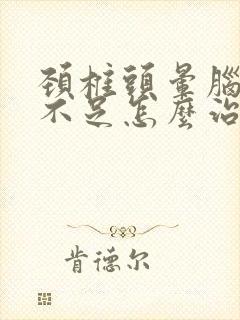 頚椎頭暈腦
不足怎麼治
肯德尔